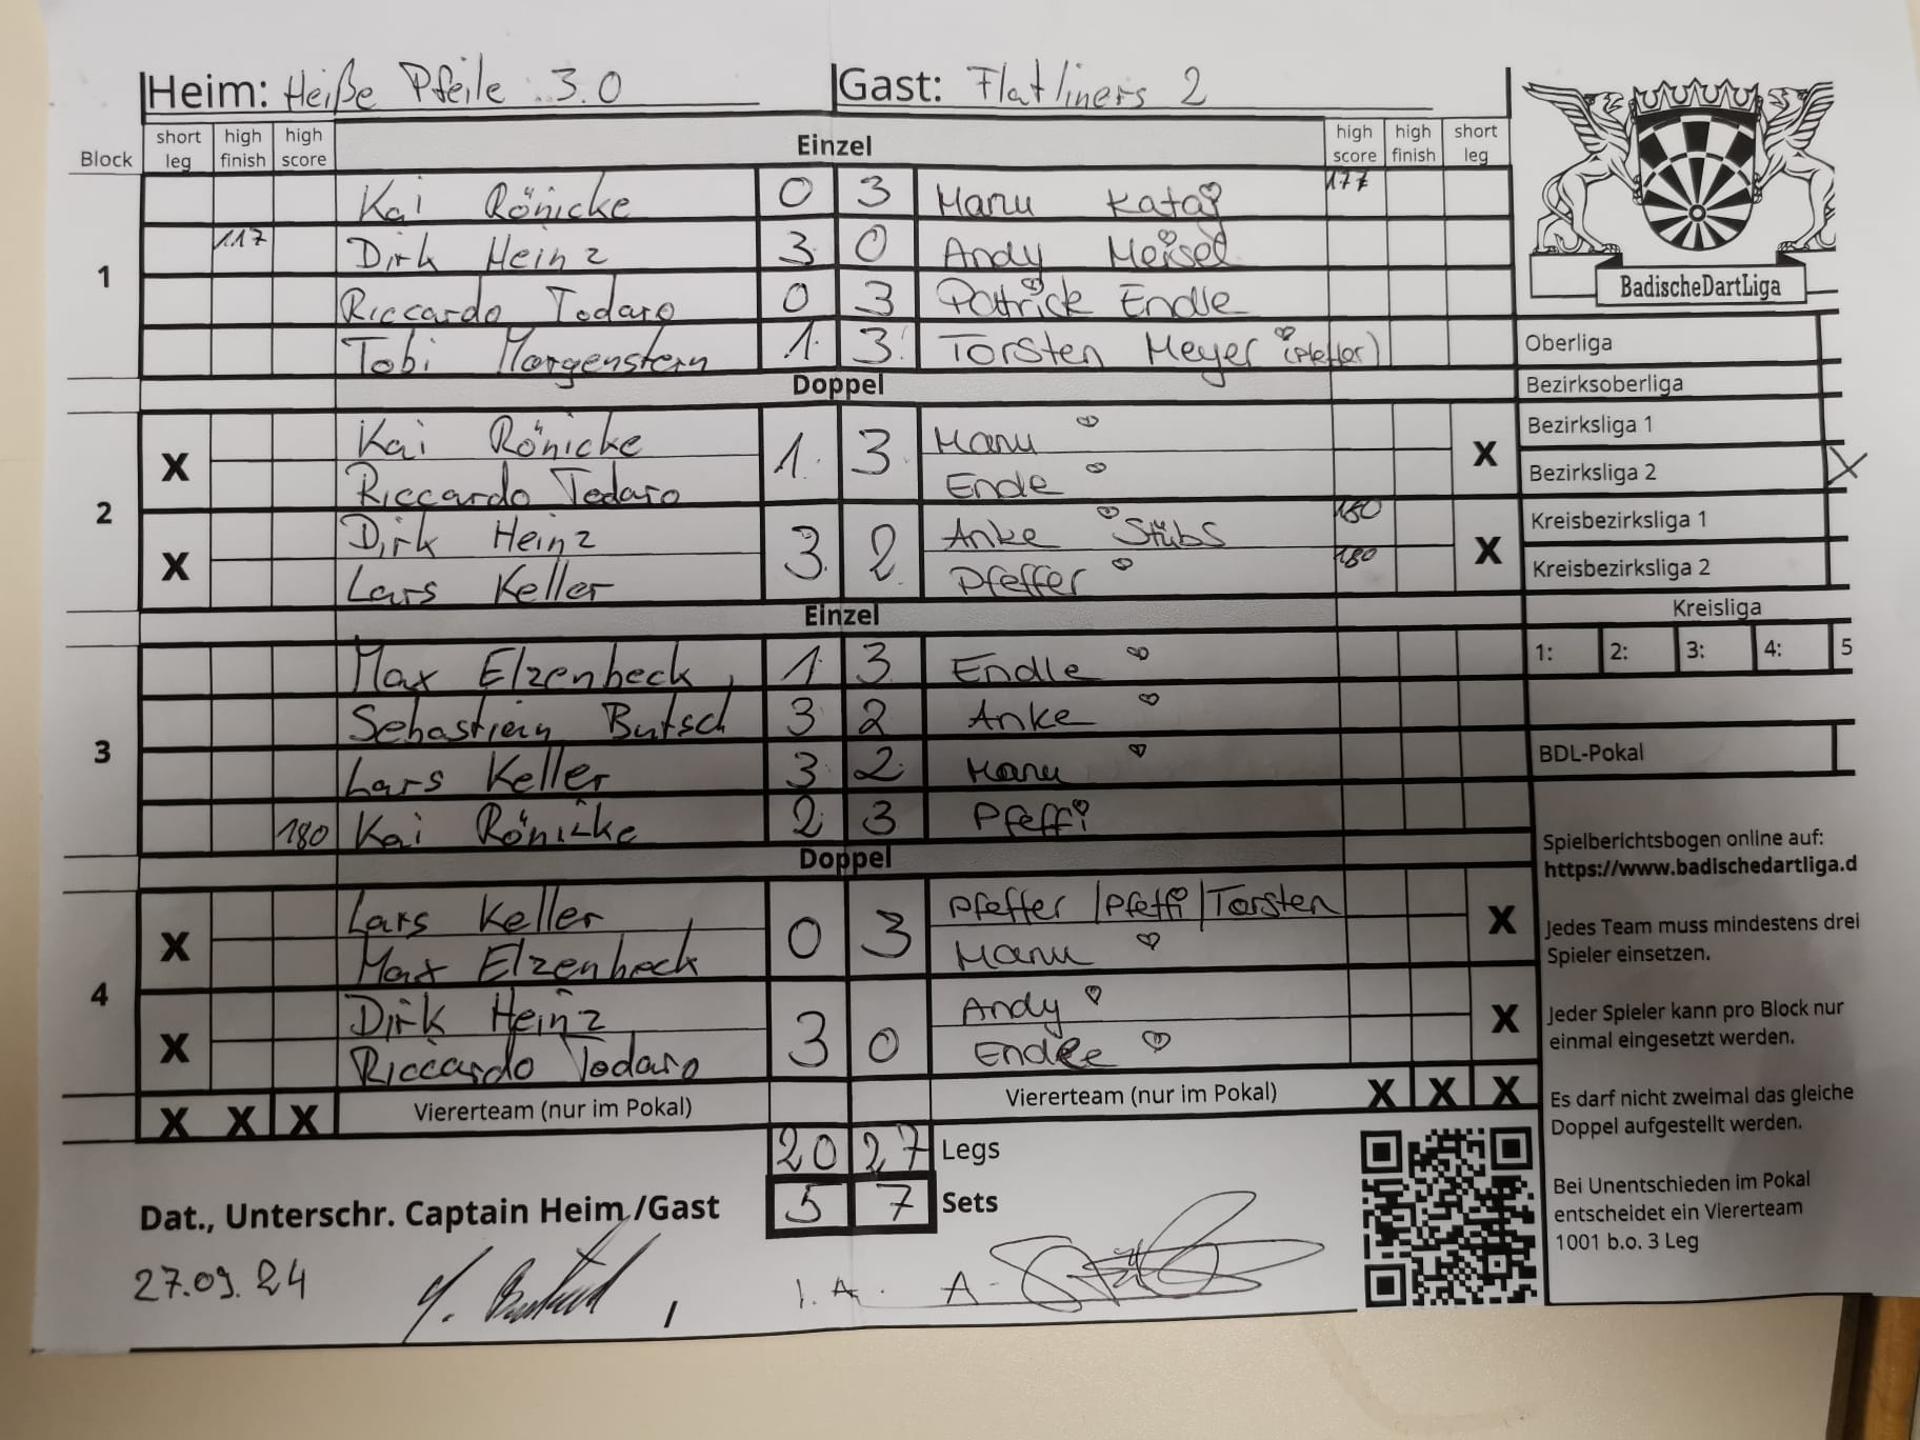 Heim: Heiße Pfeile 3.0 Gast: Flatliners 2
Block short leg high finish high score Einzel high score high finish short leg
Kai Rönicke 0 3 Manu Kataj 177
1 117 Dirk Heinz 3 0 Andy Meisel
Riccardo Todaro 0 3 Patrick Endle
Tobi Morgenstern 1 3 Torsten Meyer (Pfeffer)
Doppel
2
X Kai Rönicke 1 3 Manu X
Riccardo Todaro Endle
X Dirk Heinz 3 2 Anke Stübs 180 X
Lars Keller Pfeffer 180
Einzel
3
Max Elzenbeck 1 3 Endle
Sebastian Butsch 3 2 Anke
Lars Keller 3 2 Manu
180 Kai Rönicke 2 3 Pfeffi
Doppel
4
X Lars Keller 0 3 Pfeffer /Pfeffi /Torsten X
Max Elzenbeck Manu
X Dirk Heinz 3 0 Andy X
Riccardo Todaro Endle
X X X Viererteam (nur im Pokal) Viererteam (nur im Pokal) X X X
20 27 Legs
5 7 Sets
Dat., Unterschr. Captain Heim/Gast
27.09.24
I.A. A.
BadischeDartLiga
Oberliga
Bezirksoberliga
Bezirksliga 1
Bezirksliga 2 X
Kreisbezirksliga 1
Kreisbezirksliga 2
Kreisliga
1: 2: 3: 4: 5
BDL-Pokal
Spielberichtsbogen online auf:
https://www.badischedartliga.d
Jedes Team muss mindestens drei
Spieler einsetzen.
Jeder Spieler kann pro Block nur
einmal eingesetzt werden.
Es darf nicht zweimal das gleiche
Doppel aufgestellt werden.
Bei Unentschieden im Pokal
entscheidet ein Viererteam
1001 b.o. 3 Leg